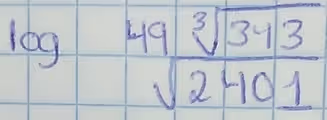 log 49 ∛343
√2401